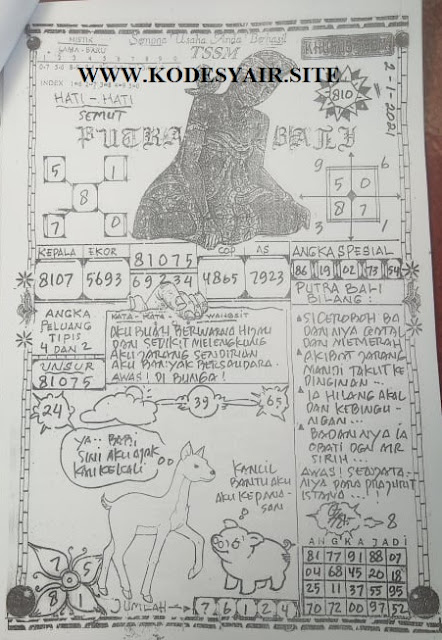 MISTIK
LAMA - BARU
Semoga Usaha Anda Berhasil
TSSM
WWW.KODESYAIR.SITE
HATI - HATI
SEMUT
PUTRA BALI
810
2-1-2021
5 1
8
7 0
9 6
5 0
8 7
3 1
KEPALA EKOR
8107 5693
81075
69234
COP AS
4865 7923
ANGKA SPESIAL
86 19 02 73 54
ANGKA
PELUANG
TIPIS
4 DAN 2
UNSUR
81075
KATA - KATA - WANGSIT
AKU BUAH BERWARNA HIJAU
DAN SEDIKIT MELENGKUNG
AKU JARANG SENDIRIAN
AKU BANYAK BERSAUDARA
AWAS! DI BUNGA!
PUTRA BALI
BILANG:
SI CEROBOH BA
DANNYA GATAL
DAN MEMERAH
AKIBAT JARANG
MANDI TAKUT KE
DINGINAN
IA HILANG AKAL
DAN KEBINGU-
NGAN...
BADANNYA IA
OBATI DGN AIR
SIRIH...
AWAS! SENJATA-
NYA PARA PRAJURIT
ISTANA...!
24
39
65
YA.. BABI
SINI AKU AJAK
KAU KE KALI
KANCIL
BANTU AKU
AKU KEPANA-
SAN
8
7 5
8 1
JUMLAH 7 6 1 2 4
ANGKA JADI
81 77 91 88 07
04 68 45 20 18
25 11 37 55 95
70 72 00 97 52